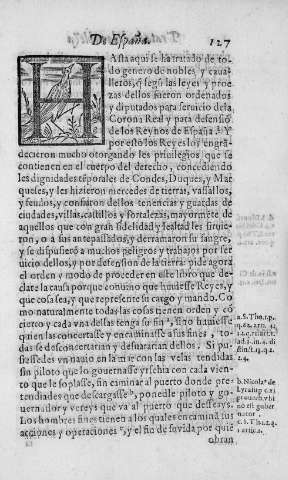 De España. 127
HAsta aqui se ha tratado de to-
do genero de nobles, y caua-
lleros, q̃ segũ las leyes y pro-
zas dellos fueron ordenados
y diputados para seruicio dela
Corona Real y para defensiõ
de los Reynos de España. Y
por esto los Reyes los engrã
decieron mucho otorgando les priuilegios que se
contienen en el cuerpo del derecho, concediendo
les dignidades tẽporales de Condes, Duques, y Mar
queses, y les hizieron mercedes de tierras, vassallos,
y feudos, y confiaron dellos tenencias y guardas de
ciudades, villas, castillos y fortalezas, mayormẽte de
aquellos que con gran fidelidad y lealtad les siruie-
ron, o a sus antepassados, y derramaron su sangre,
y se dispusierõ a muchos peligros y trabajos por ser
uicio dellos, y por defension de la tierra: vide agora
el orden y modo de proceder en este libro que de-
clare la causa porque conuino que huuiesse Reyes, y
que cosa sea, y que represente su cargo y mando. Co
mo naturalmente todas las cosas tienen orden y cõ
cierto y cada vna dellas tenga su fin, sino huuiesse
quien las concertasse y encaminasse a sus fines, to-
das se desconcertarian y desuararian dellos. Si pu-
siessedes vn nauio en la mar con las velas tendidas
sin piloto que lo gouernasse yrsehia con cada vien-
to que le soplasse, sin caminar al puerto donde pre-
tendiades que descargasse, ponedle piloto y go-
uernador y vereys que va al puerto que desseays.
Los hombres tienen fines a los quales encamina sus
acciones y operaciones, y el fin de suvida por qui
obran
a. S. Tho. 1. p.
b. Nicola<sup>9</sup> de
Lyra sup. c. xj
prouerb. vbi
nõ est guber
nator.
c. S. Tho. 1. 2.